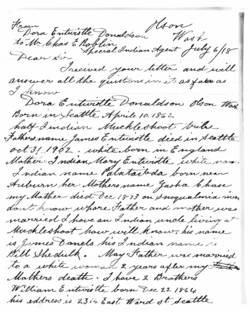 From Olson
Dora Entwistle Donaldson Wash
to Mr Chas E Roblin July 6/18
Special Indian Agent
Dear Sir
I received your letter and will
answer all the qustions in it as far as
I know
Dora Entwistle Donaldson Olson Wash
Born in Seattle April 10. 1862
half Indian Muckleshoot tribe
Father name James Entwistle died in Seattle
oct 31. 1902. white born in England
Mother Indian Mary Entwistle
Indian name born near
Auburn her Mothers name
my Mother died Dec 1873 on
dont know where Father and mother was
married I have an Indian uncle living at
Muckleshoot how will know his name
is James Daniels his Indian name is
Bill My Father was married
to a white woman 2 years after my
Mothers death. I have 2 Brothers
William Entwistle born Dec 22. 1864
his address is East Ward st Seattle